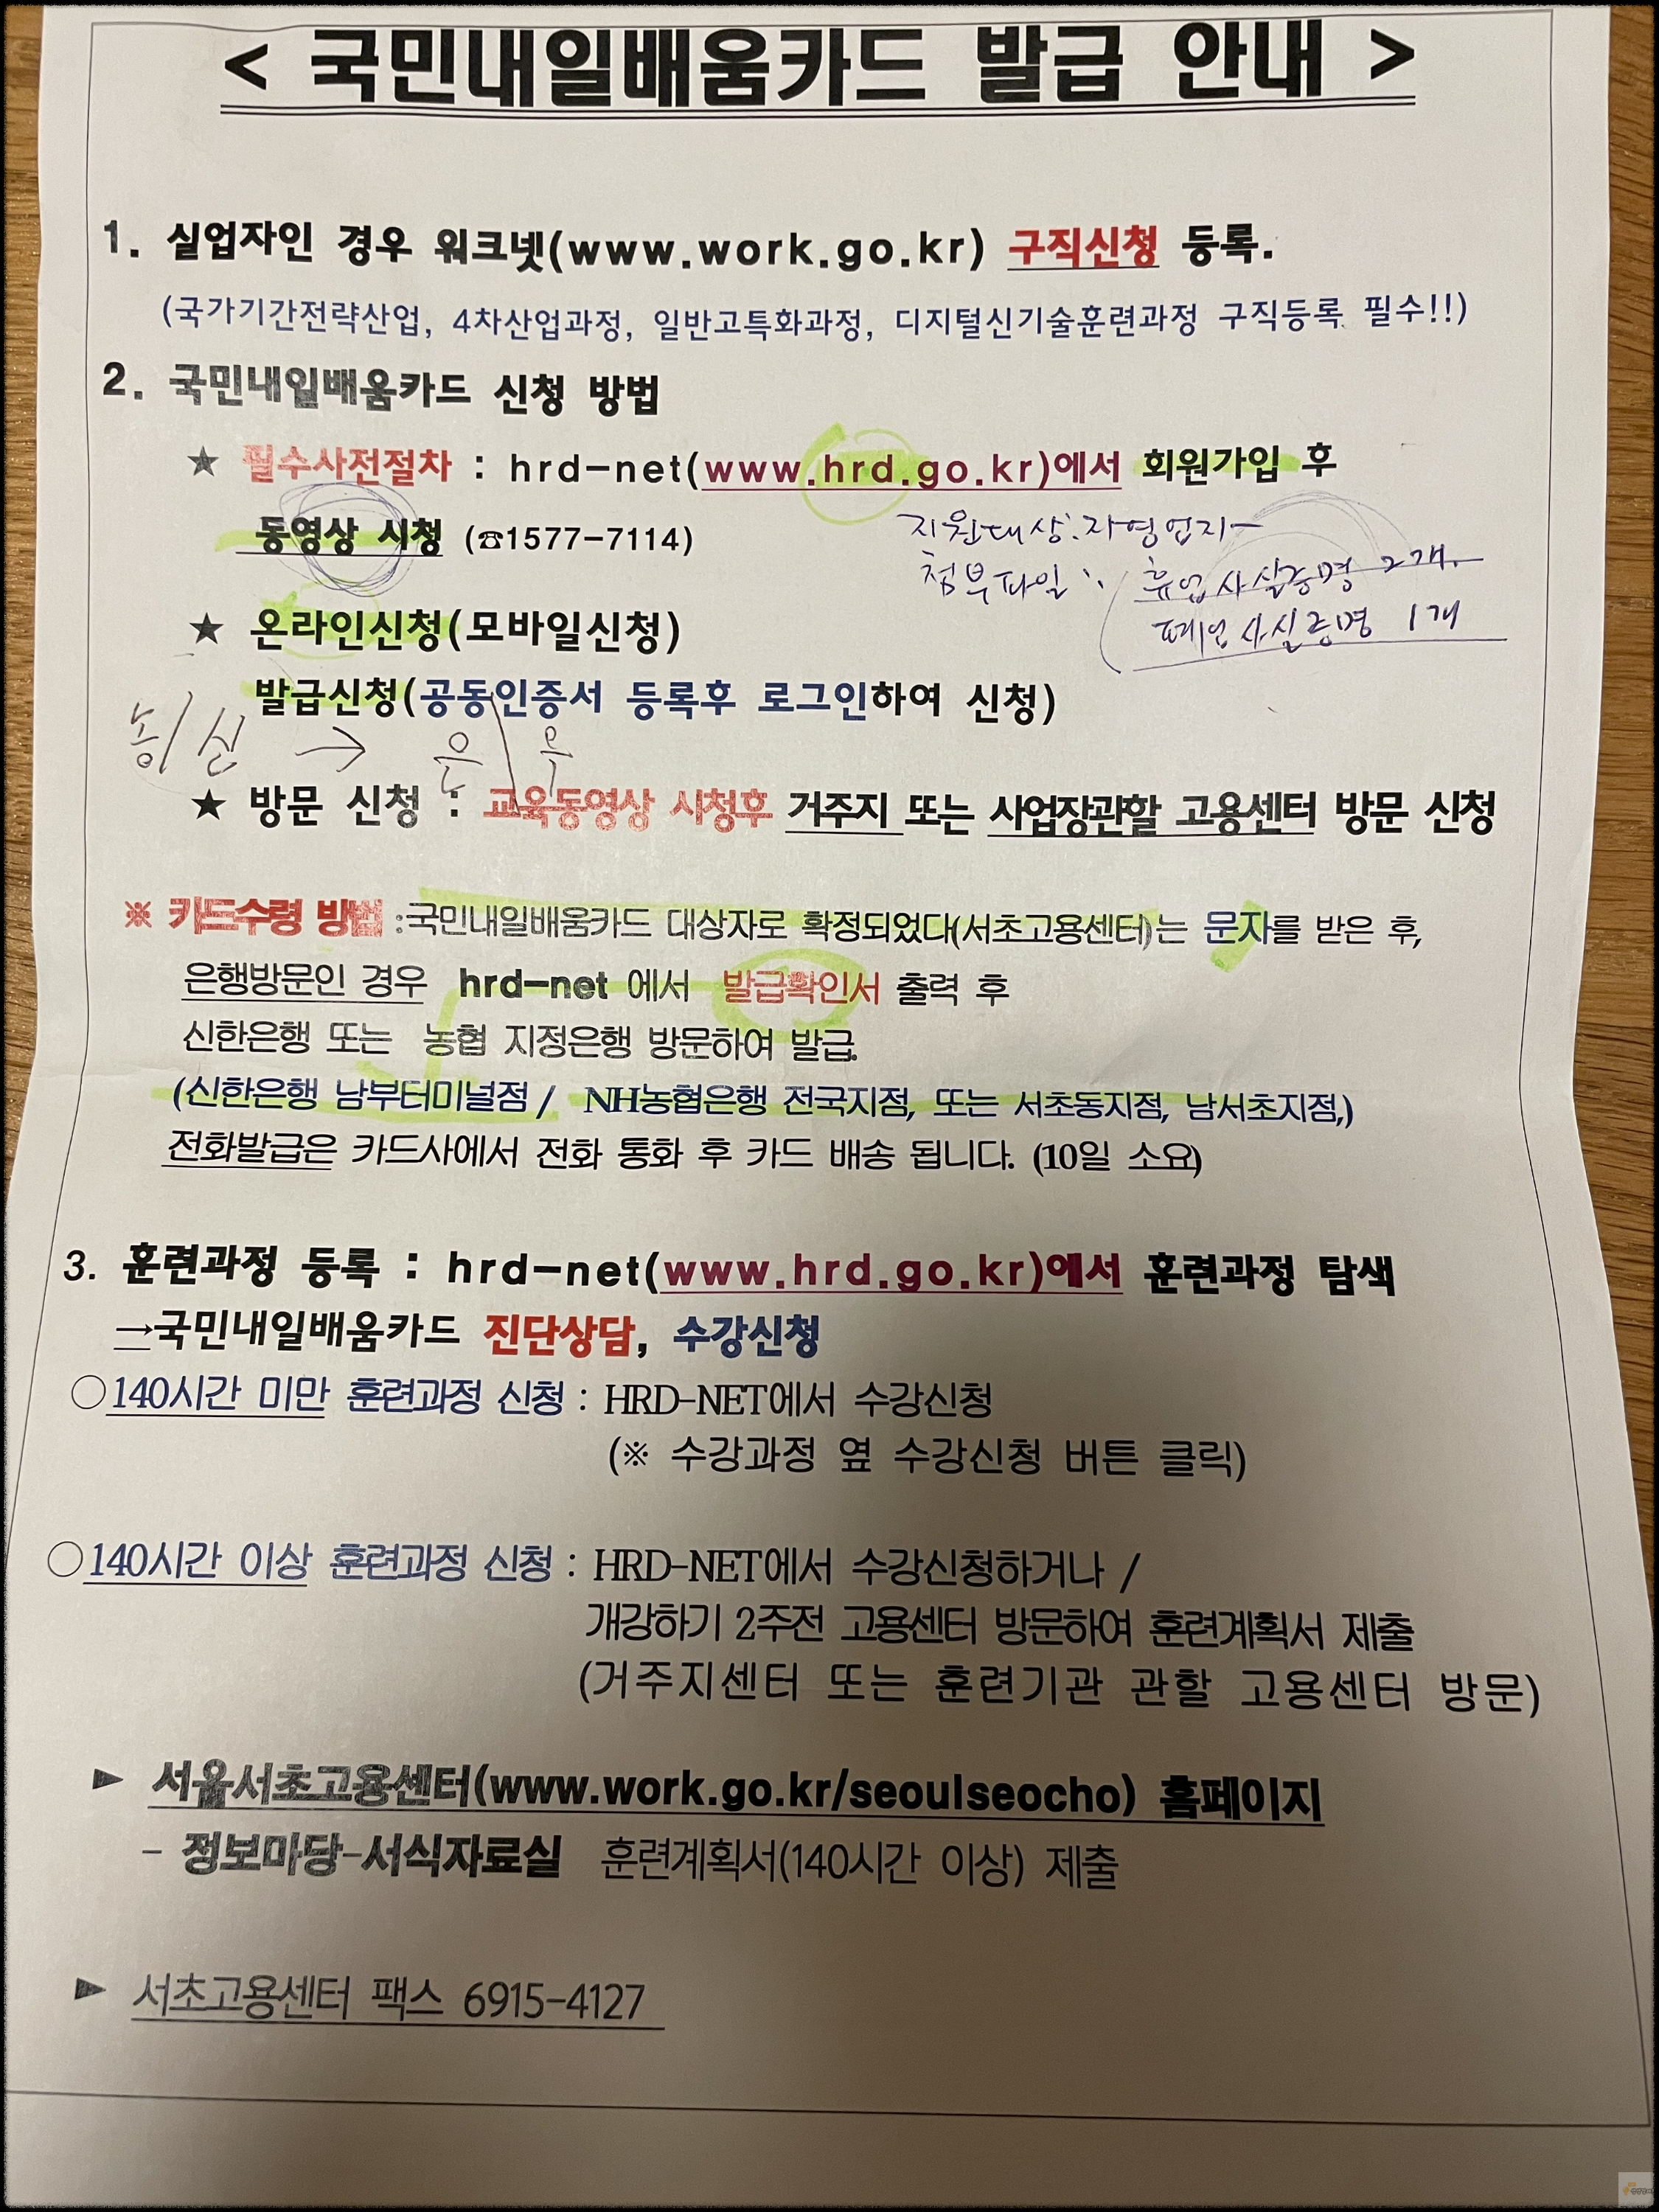 < 국민내일배움카드 발급 안내 >
1. 실업자인 경우 워크넷(www.work.go.kr) 구직신청 등록.
(국가기간전략산업, 4차산업과정, 일반고특화과정, 디지털신기술훈련과정 구직등록 필수!!)
2. 국민내일배움카드 신청 방법
★ 필수사전절차 : hrd-net(www.hrd.go.kr)에서 회원가입 후
동영상 시청 (☎1577-7114)
지원대상:자영업자-
첨부파일: 휴업사실증명 2개.
폐업사실증명 1개
★ 온라인신청(모바일신청)
발급신청(공동인증서 등록후 로그인하여 신청)
농/신 → 은 / 우
★ 방문 신청 : 교육동영상 시청후 거주지 또는 사업장관할 고용센터 방문 신청
※ 카드수령 방법 :국민내일배움카드 대상자로 확정되었다(서초고용센터)는 문자를 받은 후,
은행방문인 경우 hrd-net 에서 발급확인서 출력 후
신한은행 또는 농협 지정은행 방문하여 발급.
(신한은행 남부터미널점 / NH농협은행 전국지점, 또는 서초동지점, 남서초지점,)
전화발급은 카드사에서 전화 통화 후 카드 배송 됩니다. (10일 소요)
3. 훈련과정 등록 : hrd-net(www.hrd.go.kr)에서 훈련과정 탐색
→국민내일배움카드 진단상담, 수강신청
○140시간 미만 훈련과정 신청 : HRD-NET에서 수강신청
(※ 수강과정 옆 수강신청 버튼 클릭)
○140시간 이상 훈련과정 신청 : HRD-NET에서 수강신청하거나 /
개강하기 2주전 고용센터 방문하여 훈련계획서 제출
(거주지센터 또는 훈련기관 관할 고용센터 방문)
► 서울서초고용센터(www.work.go.kr/seoulseocho) 홈페이지
- 정보마당-서식자료실 훈련계획서(140시간 이상) 제출
► 서초고용센터 팩스 6915-4127